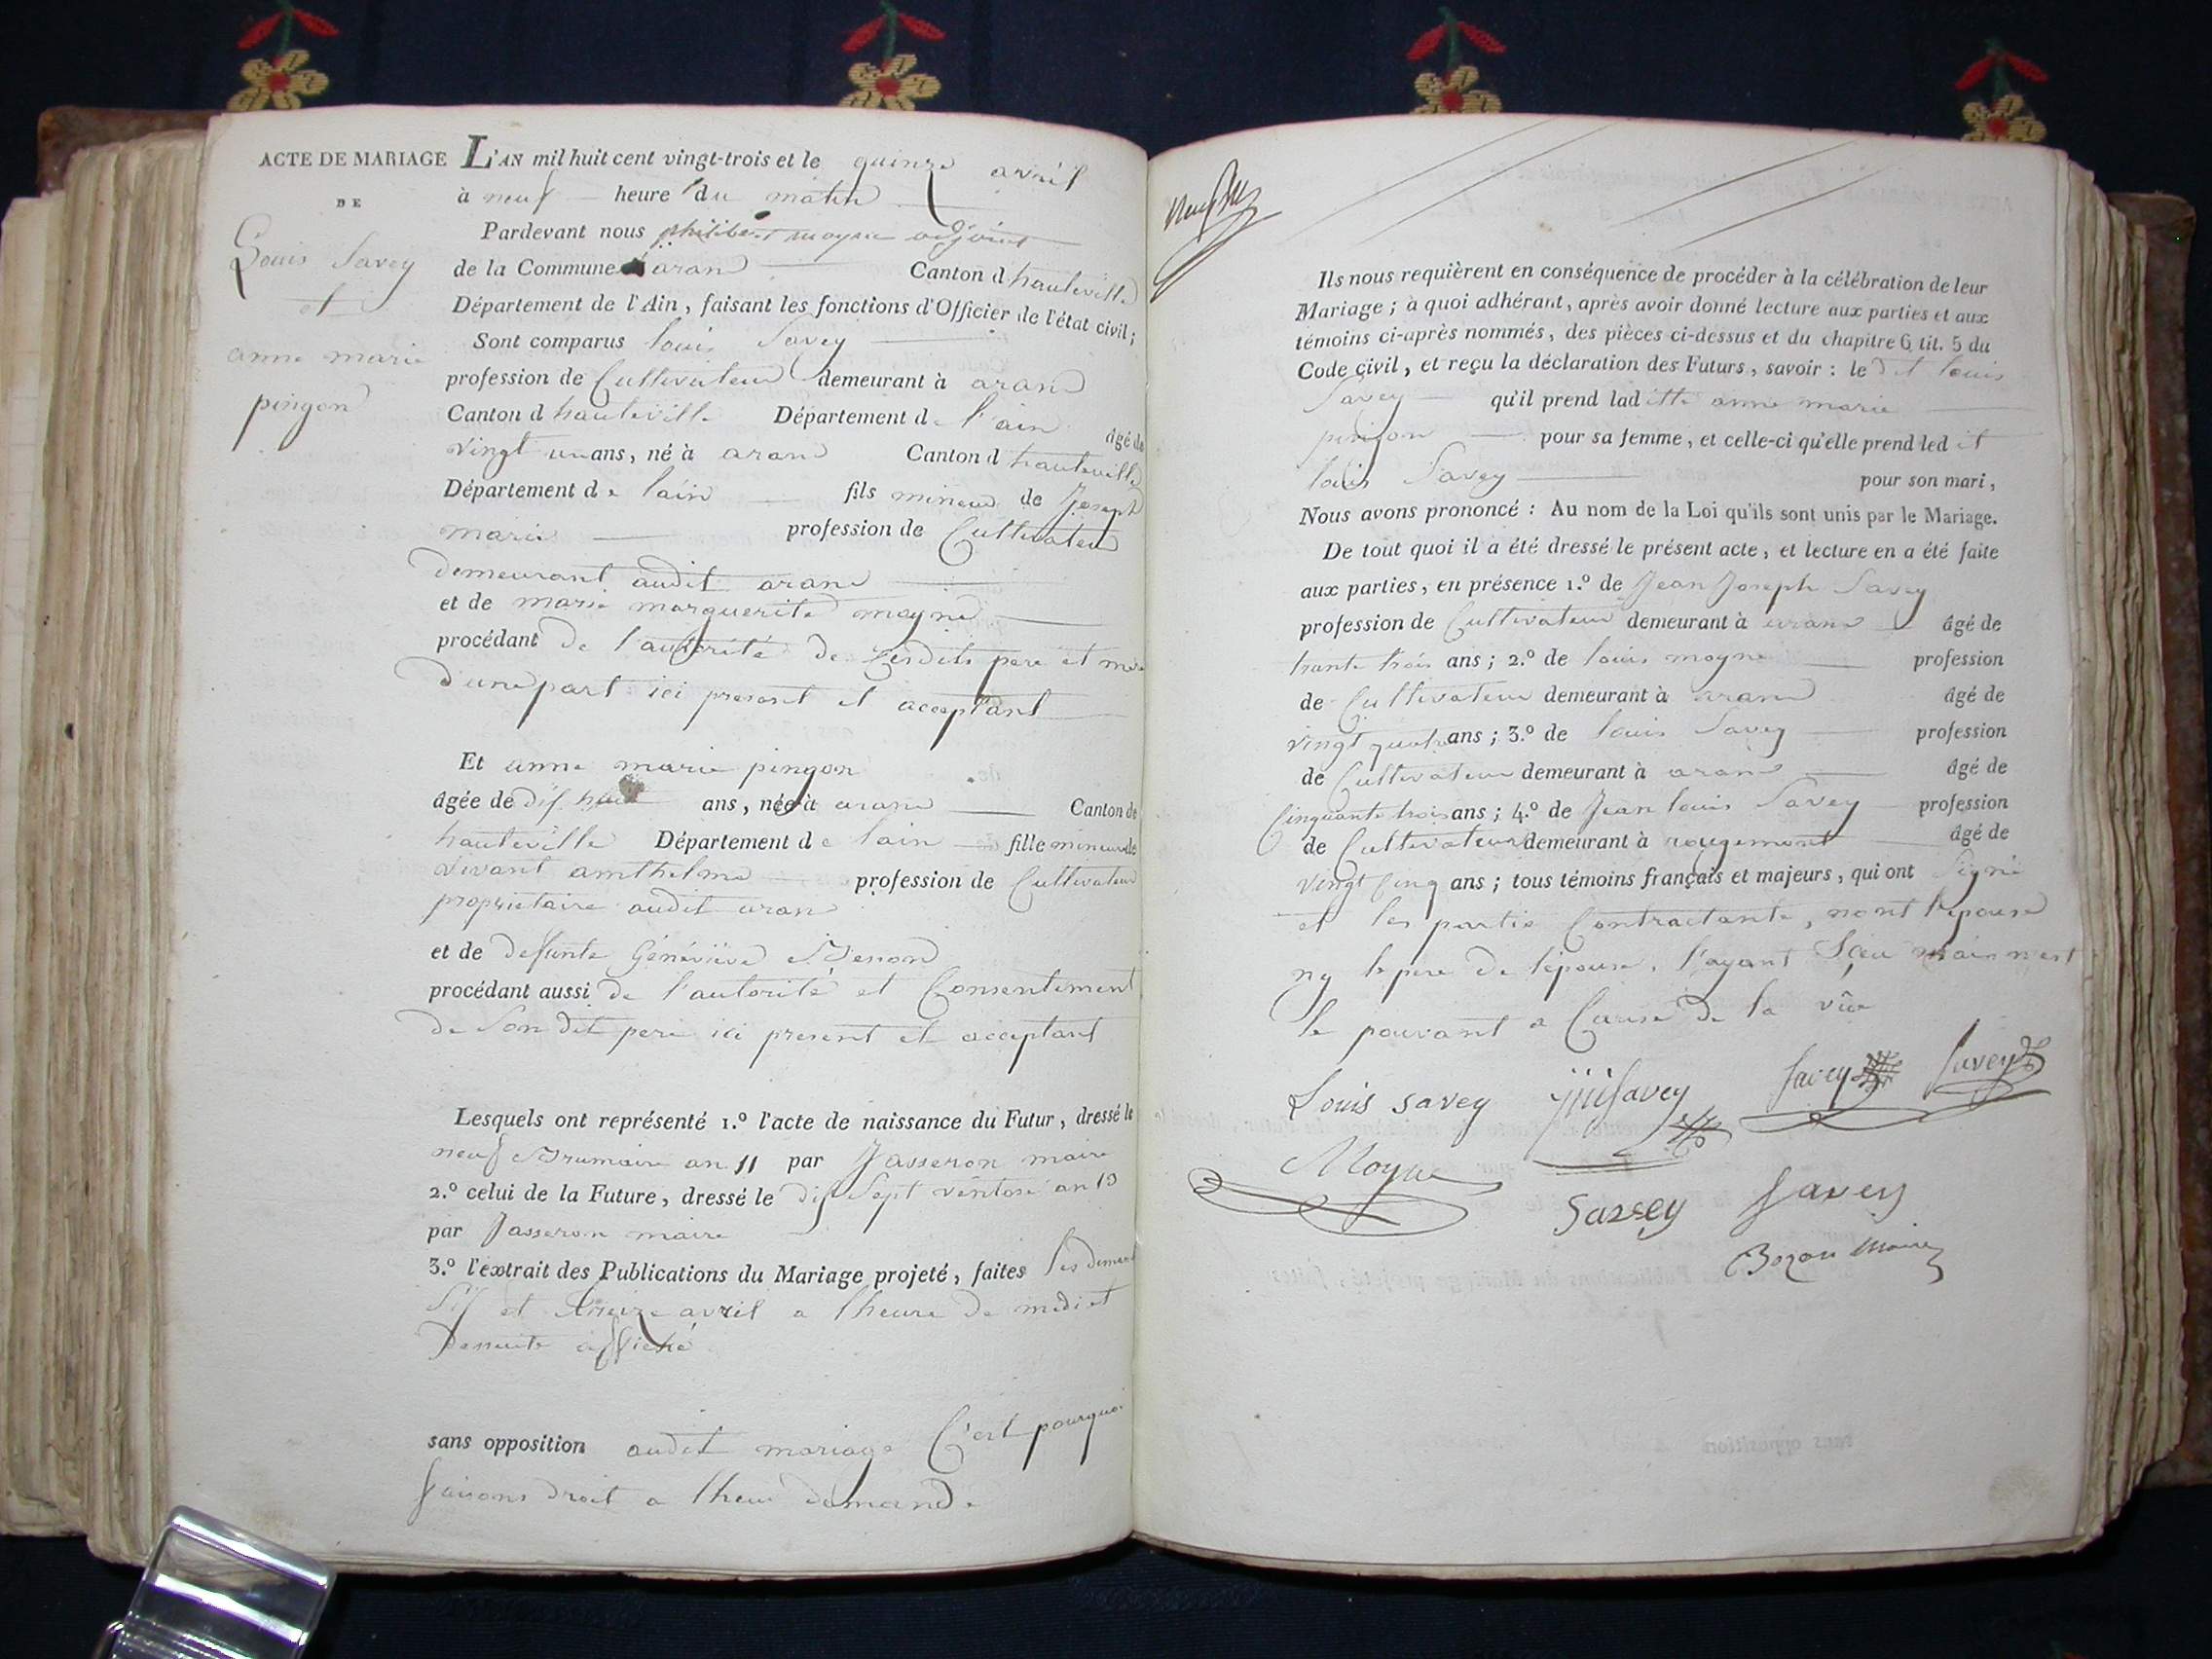 ACTE DE MARIAGE
DE
Louis Savey
et
anne marie
pingon
L'AN mil huit cent vingt-trois et le quinze avril
à neuf heure du matin
Pardevant nous philibert moyne adjoint
de la Commune aran Canton d hauteville
Département de l'Ain, faisant les fonctions d'Officier de l'état civil;
Sont comparus louis Savey
profession de Cultivateur demeurant à aran
Canton d hauteville Département de l'ain âgé de
vingt un ans, né à aran Canton d hauteville
Département de lain fils mineur de Joseph
marie profession de Cultivateur
demeurant audit aran
et de marie marguerite moyne
procédant de l'autorité de Sesdits pere et mere
d'une part ici present et acceptant
Et anne marie pingon
âgée de dis huit ans, née à aran Canton de
hauteville Département de lain fille mineure de
vivant amthelme profession de Cultivateur
propriétaire audit aran
et de defunte Généviève
procédant aussi de l'autorité et Consentement
de Son dit pere ici present et acceptant
Lesquels ont représenté 1.º l'acte de naissance du Futur, dressé le
neuf Brumaire an 11 par Jasseron maire
2.º celui de la Future, dressé le dis Sept ventose an 13
par Jasseron maire
3.º l'extrait des Publications du Mariage projeté, faites les
Sis et treize avril a lheure de midi et
Densuite affiché
sans opposition audit mariage C'est pourquoi
faisons droit a lheur demande
Ils nous requièrent en conséquence de procéder à la célébration de leur
Mariage; à quoi adhérant, après avoir donné lecture aux parties et aux
témoins ci-après nommés, des pièces ci-dessus et du chapitre 6, tit. 5 du
Code civil, et reçu la déclaration des Futurs, savoir: le dit louis
Savey qu'il prend laditte anne marie
pingon pour sa femme, et celle-ci qu'elle prend ledit
louis Savey pour son mari,
Nous avons prononcé: Au nom de la Loi qu'ils sont unis par le Mariage.
De tout quoi il a été dressé le présent acte, et lecture en a été faite
aux parties, en présence 1.º de Jean Joseph Savey
profession de Cultivateur demeurant à aran âgé de
trante trois ans; 2.º de louis moyne profession
de Cultivateur demeurant à aran âgé de
vingt quatre ans; 3.º de louis Savey profession
de Cultivateur demeurant à aran âgé de
Cinquante trois ans; 4.º de Jean louis Savey profession
de Cultivateur demeurant à rougemont âgé de
vingt Cinq ans; tous témoins français et majeurs, qui ont Signé
et les partie Contractante, nont lepouse
ny le pere de lépouse, l'ayant Sceu mais n'est
le pouvant a Cause de la vûe
Louis Savey jjHSavey Savey Savey
Moyne
Savey Savey
Bozon Maire